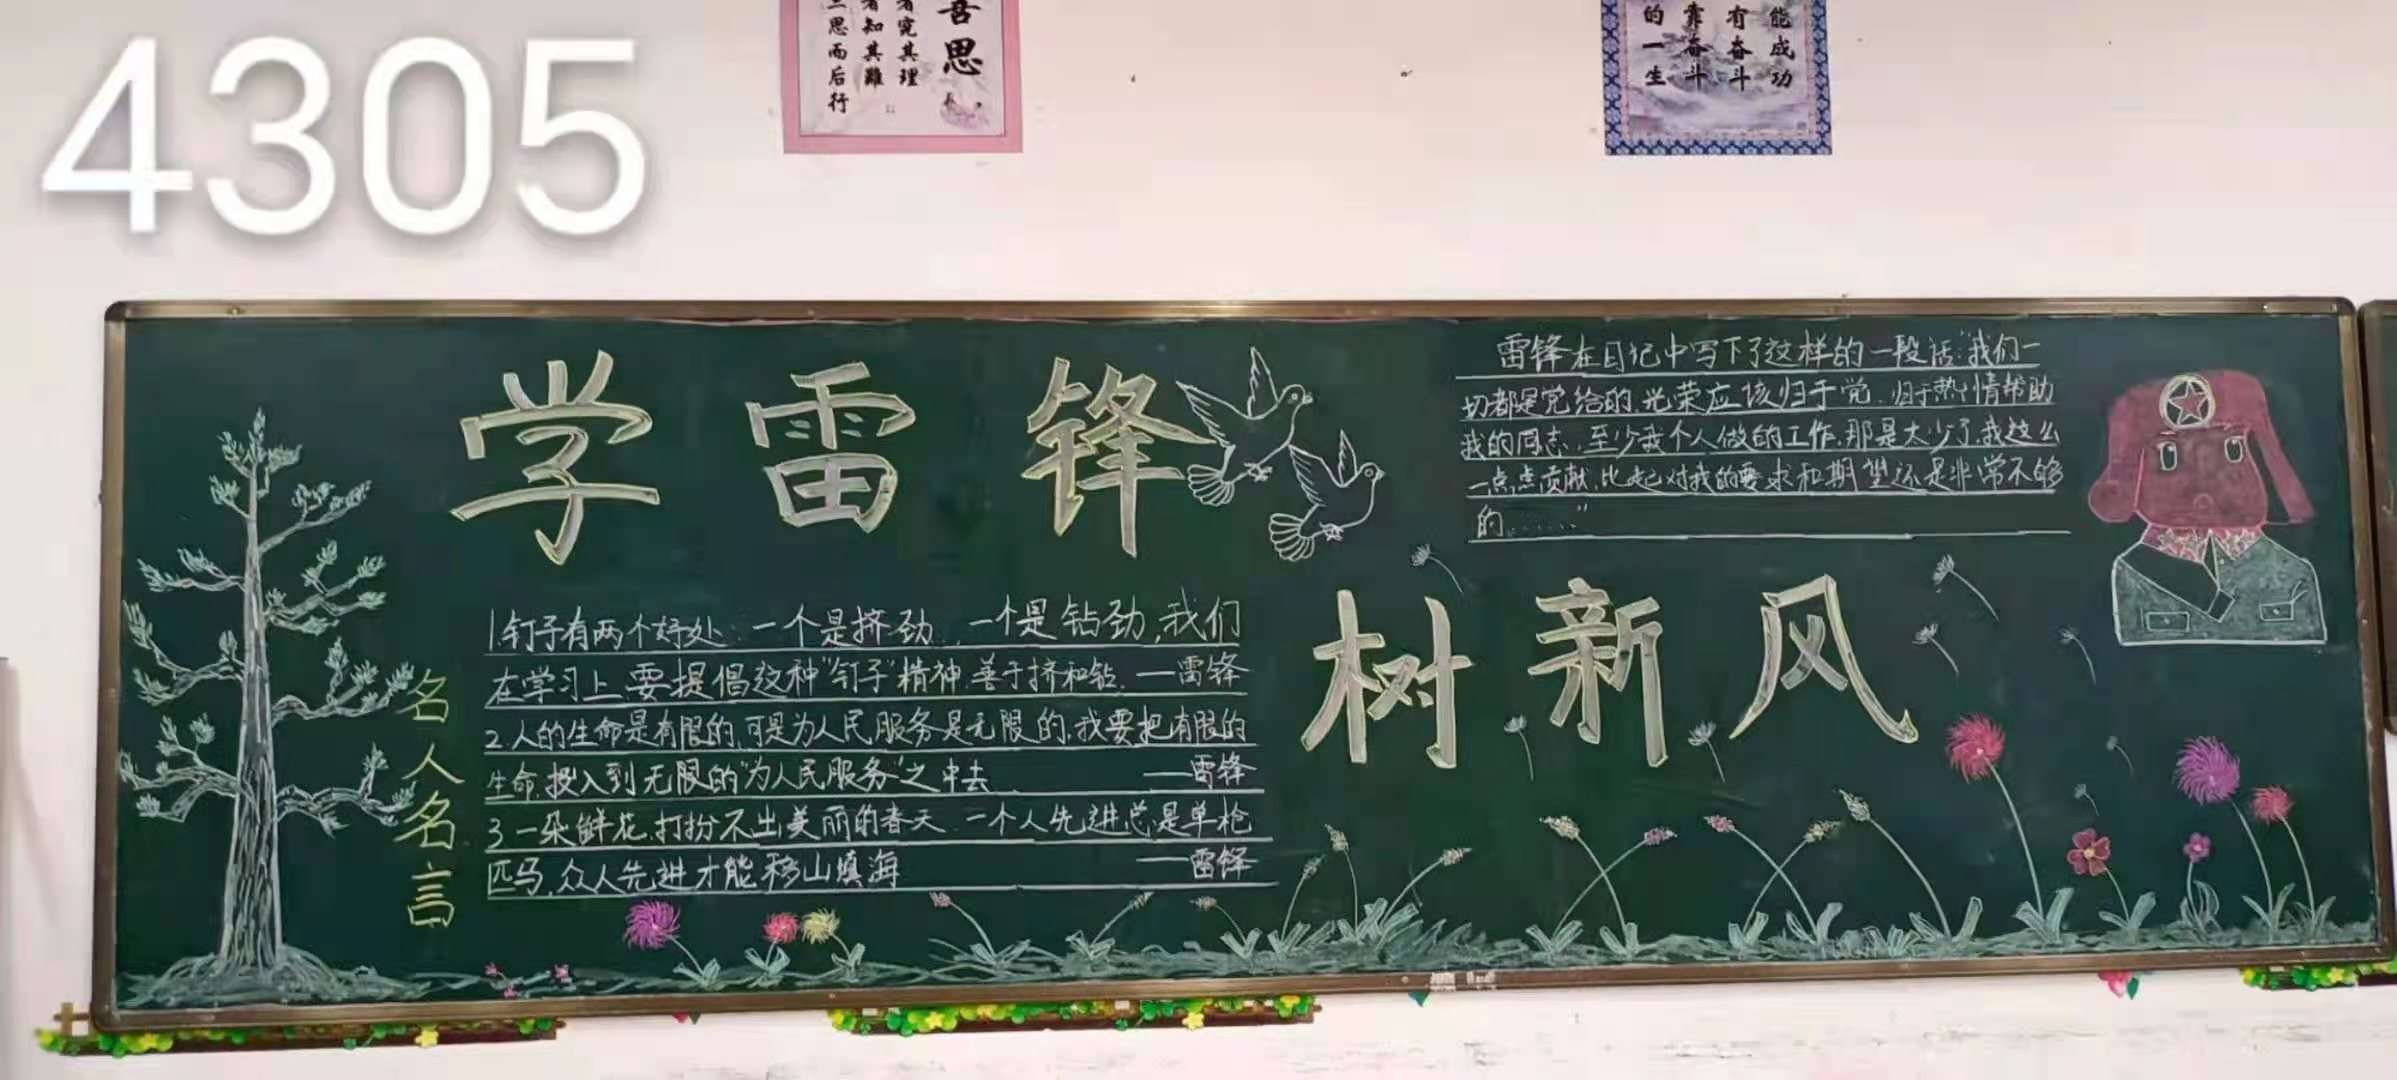 4305
吾思
者究其理
者知其难
三思而后行
能成功
有奋斗
靠奋斗
的一生
学雷锋
雷锋在日记中写下了这样的一段话:"我们一
切都是党给的,光荣应该归于党,归于热情帮助
我的同志,至少我个人做的工作,那是太少了,我这么
一点点贡献,比起对我的要求和期望还是非常不够
的......"
树新风
名人名言
1.钉子有两个好处,一个是挤劲,一个是钻劲,我们
在学习上,要提倡这种"钉子"精神,善于挤和钻.——雷锋
2.人的生命是有限的,可是为人民服务是无限的,我要把有限的
生命,投入到无限的"为人民服务"之中去——雷锋
3.一朵鲜花打扮不出美丽的春天,一个人先进总是单枪
匹马,众人先进才能移山填海——雷锋